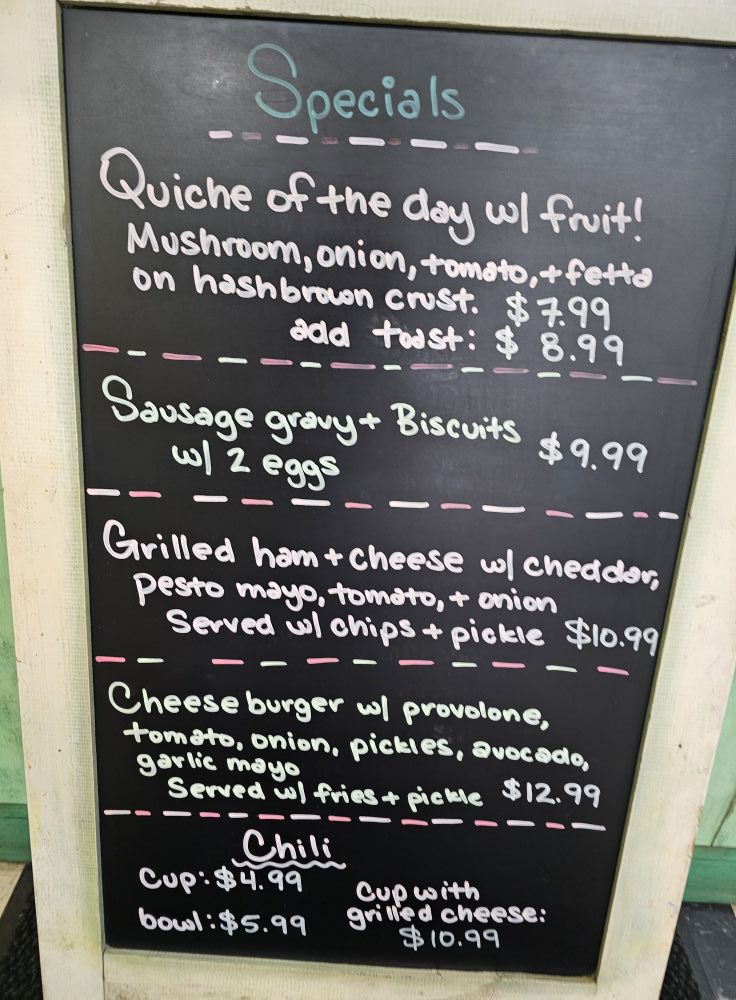 Specials
Quiche of the day w/ fruit!
Mushroom, onion, tomato, + fetta
on hashbrown crust. $7.99
add toast: $8.99
Sausage gravy + Biscuits
w/ 2 eggs $9.99
Grilled ham + cheese w/ cheddar,
pesto mayo, tomato, + onion
Served w/ chips + pickle $10.99
Cheeseburger w/ provolone,
tomato, onion, pickles, avocado,
garlic mayo
Served w/ fries + pickle $12.99
Chili
Cup: $4.99
bowl: $5.99
Cup with
grilled cheese:
$10.99